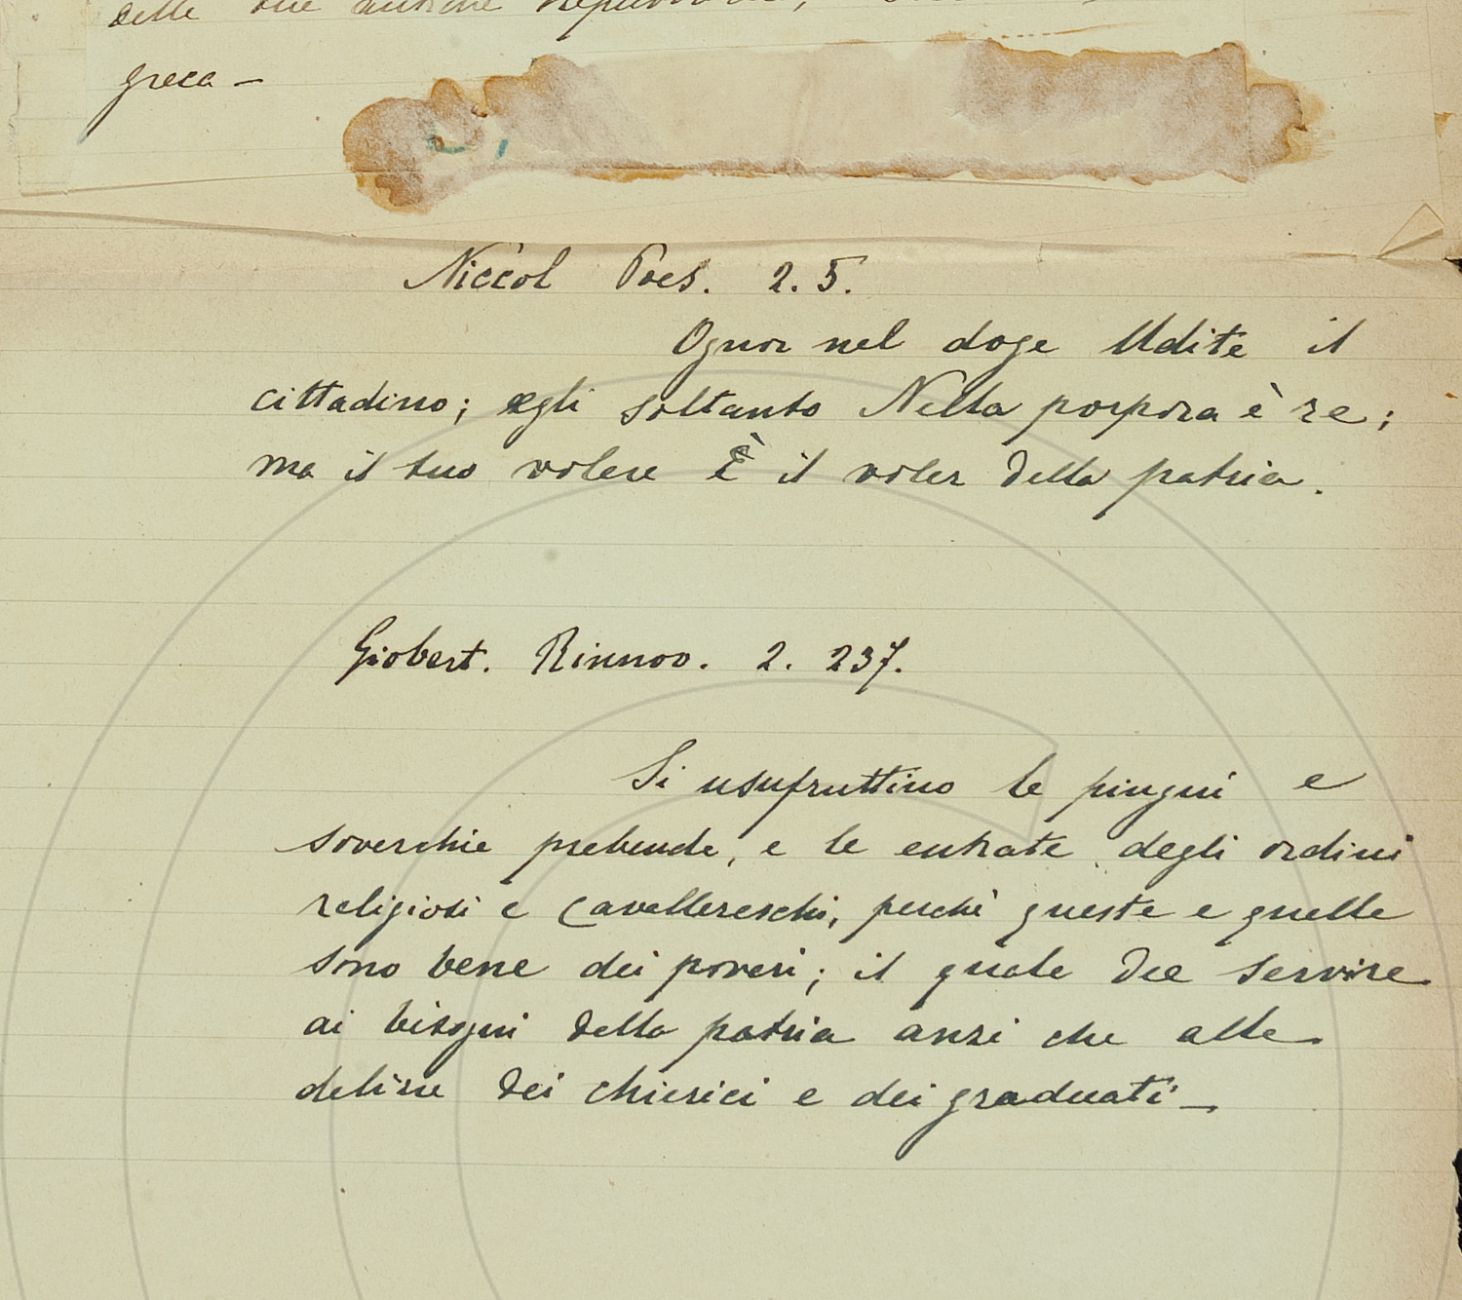 delle sue antiche
greca —
Niccol Poes. 2. 5.
Ognor nel doge Udite il
cittadino; egli soltanto Nella porpora è re;
ma il tuo volere È il voler della patria.
Giobert. Rinnov. 2. 237.
Si usufruttino le pingui e
soverchie prebende, e le entrate degli ordini
religiosi e cavallereschi, perchè queste e quelle
sono bene dei poveri; il quale dee servire
ai bisogni della patria anzi che alle
delizie dei chierici e dei graduati —